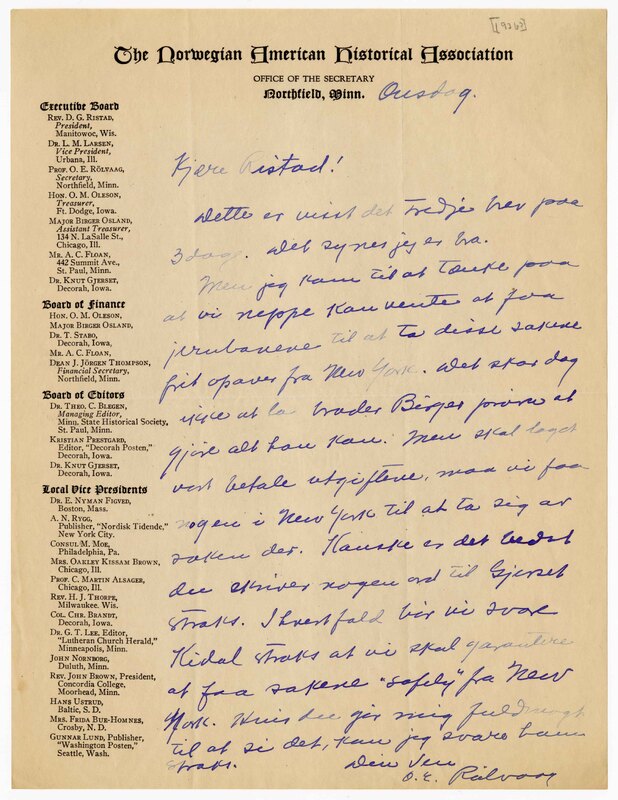 [1926?]
The Norwegian American Historical Association
OFFICE OF THE SECRETARY
Northfield, Minn.
Onsdag.
Executive Board
REV. D. G. RISTAD,
President,
Manitowoc, Wis.
DR. L. M. LARSEN,
Vice President,
Urbana, Ill.
PROF. O. E. RÖLVAAG,
Secretary,
Northfield, Minn.
HON. O. M. OLESON,
Treasurer,
Ft. Dodge, Iowa.
MAJOR BIRGER OSLAND,
Assistant Treasurer,
134 N. LaSalle St.,
Chicago, Ill.
MR. A. C. FLOAN,
442 Summit Ave.,
St. Paul, Minn.
DR. KNUT GJERSET,
Decorah, Iowa.
Board of Finance
HON. O. M. OLESON,
MAJOR BIRGER OSLAND,
DR. T. STABO,
Decorah, Iowa.
MR. A. C. FLOAN,
DEAN J. JÖRGEN THOMPSON,
Financial Secretary,
Northfield, Minn.
Board of Editors
DR. THEO. C. BLEGEN,
Managing Editor,
Minn. State Historical Society,
St. Paul, Minn.
KRISTIAN PRESTGARD,
Editor, "Decorah Posten,"
Decorah, Iowa.
DR. KNUT GJERSET,
Decorah, Iowa.
Local Vice Presidents
DR. E. NYMAN FIGVED,
Boston, Mass.
A. N. RYGG,
Publisher, "Nordisk Tidende,"
New York City.
CONSUL M. MOE,
Philadelphia, Pa.
MRS. OAKLEY KISSAM BROWN,
Chicago, Ill.
PROF. C. MARTIN ALSAGER,
Chicago, Ill.
REV. H. J. THORPE,
Milwaukee, Wis.
COL. CHR. BRANDT,
Decorah, Iowa.
DR. G. T. LEE, Editor,
"Lutheran Church Herald,"
Minneapolis, Minn.
JOHN NORNBORG,
Duluth, Minn.
REV. JOHN BROWN, President,
Concordia College,
Moorhead, Minn.
HANS USTRUD,
Baltic, S. D.
MRS. FRIDA BUE-HOMNES,
Crosby, N. D.
GUNNAR LUND, Publisher,
"Washington Posten,"
Seattle, Wash.
Kjære Ristad!
Dette er visst det tredje brev paa
3 dage. Det synes jeg er bra.
Men jeg kom til at tænke paa
at vi neppe kan vente at faa
jernbanene til at ta disse sakene
frit opover fra New York. Det skar dog
ikke at la broder Birger prøve at
gjøre alt han kan. Men skal laget
vort betale utgiftene, maa vi faa
nogen i New York til at ta sig av
saken der. Kanske er det bedst
du skriver nogen ord til Gjerset
straks. I hvert fald bør vi svare
Kidal straks at vi skal garantere
at faa sakene "safely" fra New
York. Hvis du gir mig fuldmagt
til at si det, kan jeg svare ham
straks.
Din Ven
O. E. Rölvaag